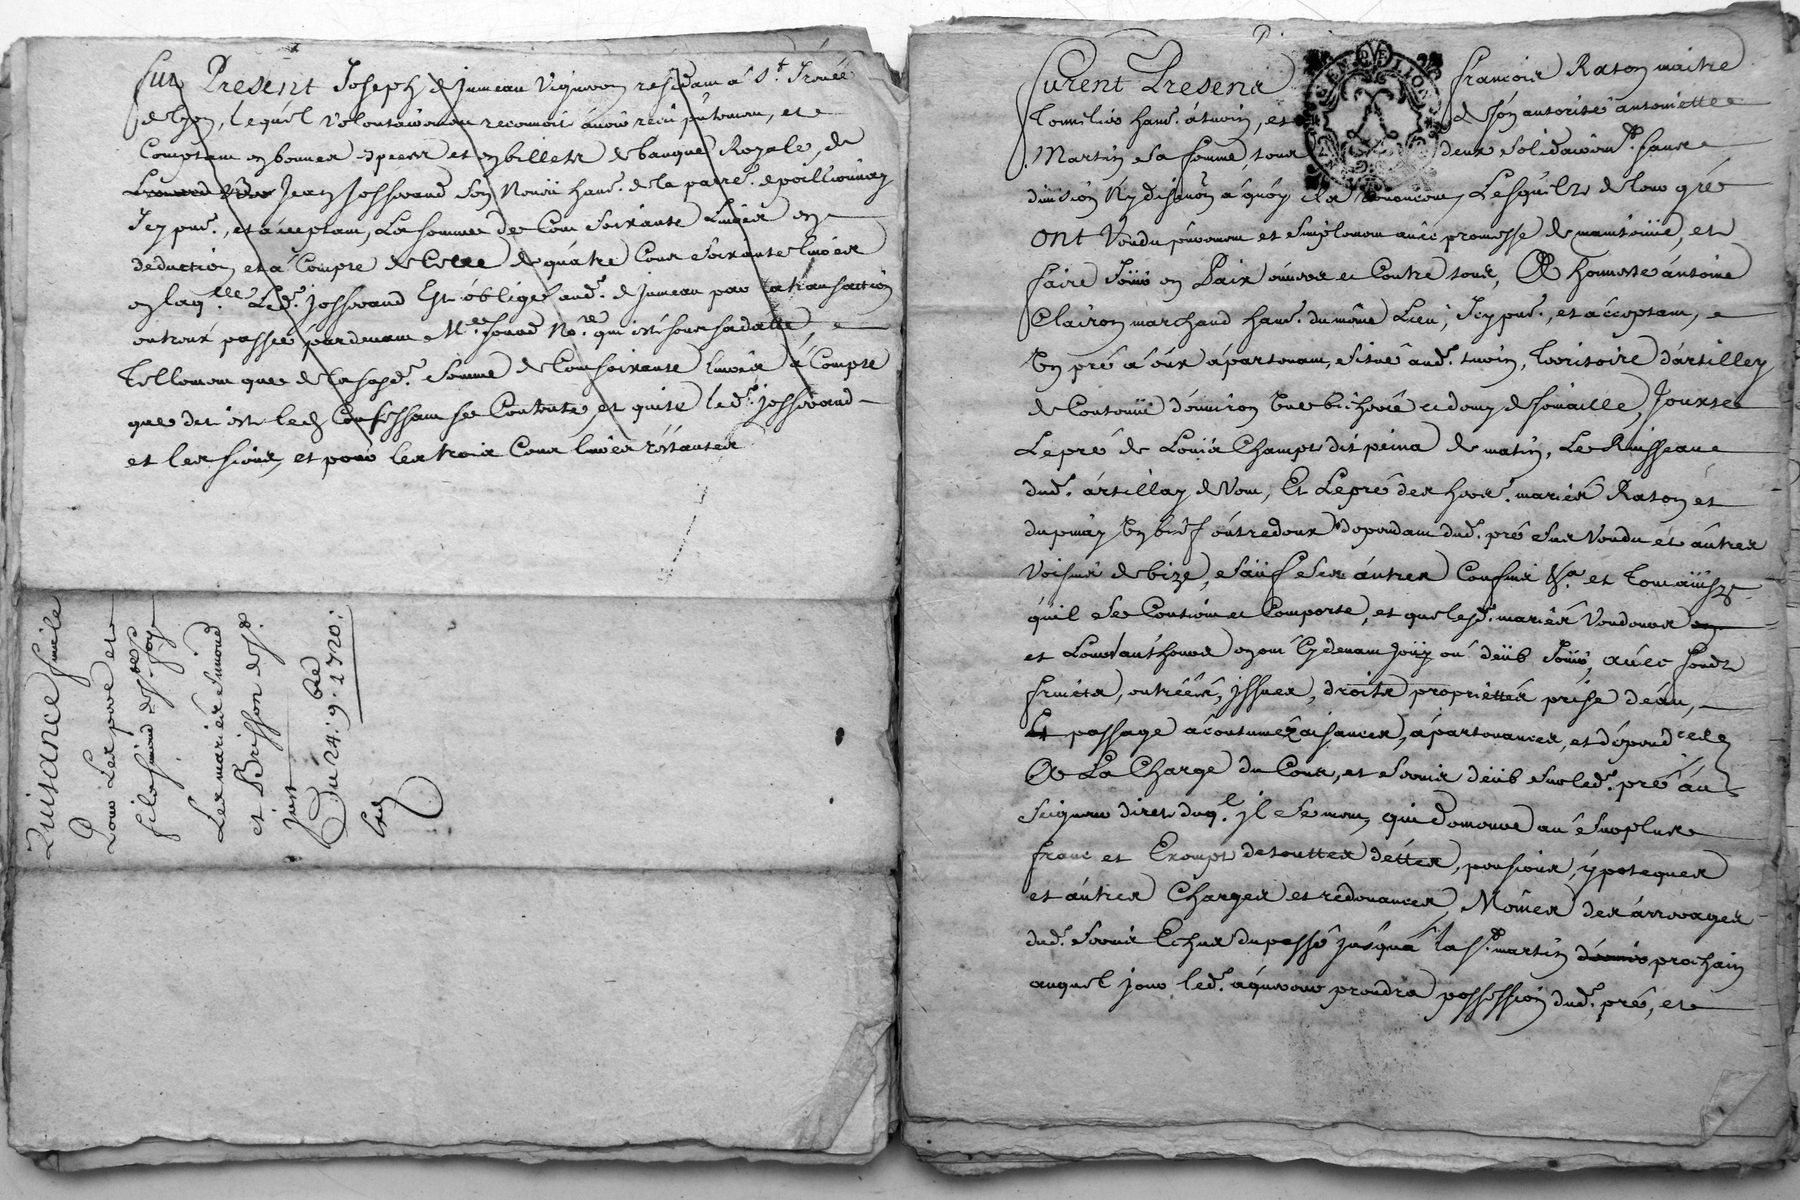 fut Present Joseph dejumeau Vigneron residant à St. Irenée
de Lyon, lequel volontairement reconnoit avoir reçu pntement, et
Comptant en bonnes especes et en billets de banque Royale, de
Jean Josserand son Nousü hant. de la paire.
Icy pnt., et acceptant, La somme de Cent soixante Livres en
deduction, et à Compte de Celle de quatre Cens soixante livres
en laqlle. Led. josserand Est obligé aud. dejumeau par la transaction
entreux passée pardevant Me. No.re qui est sous sa datte,
tellement que de la sspd. somme de Cent soixante livres à Compte
que dit est led Confessant se Contente, et quite led. josserand
et les siens, et pour les trois Cens livres restantes
Quisance faite
Pour Les pere et
fils simond des. Foy
Les mariés simond
et Brisson des.
just
Du 24. 9.bre 1720.
furent Presens françois Raton maitre
hant. à tuoin, et de son autorité antoinette
Martin sa femme, tous deux solidairemt. sans
division Ny disćuon à quoy ils renoncent, Lesquels de leur gré
ont Vendu purement et simplement avec promesse de maintenir, et
faire Jouir en Paix envers et Contre tous, A honneste antoine
Clairon marchand hant. du même Lieu, Icy pnt., et acceptant,
Un pré à eux apartenant, situé aud. tuoin, territoire d'artilley
de Contenue d'environ Une bicherée et demy de semaille, Jouxte
Le pré de Louis Champt dit peina de matin, Le Ruisseau
dud. artillay de Vent, Et Le pré des hoirs. mariés Raton et
dupuis Un bief entredeux dependant dud. pré sus Vendu et autres
Voisins de bize, sauf ses autres Confins &a. et tout ainsy
qu'il se Contient et Comporte, et que lesd. mariés Vendeurs
et Leurs autheurs en ont Cy devant jouy ou deub Jouir, avec fonds
fruicts, entrées, issues, droits proprietés prise d'eau,
Et passage acoutumé, aisances, apartenances, et dependces
A La Charge du Cens, et servis deub sur led. pré au
Seigneur direct duql. il se meut, qui Demeure au surplus
franc et Exempt de touttes dettes, pensions, ypoteques
et autres Charges et redevances, Mêmes des arrerages
dud. servis Echus du passé jusqu'à la St. martin prochain
auquel jour led. aquereur prendra possession dud. pré, et